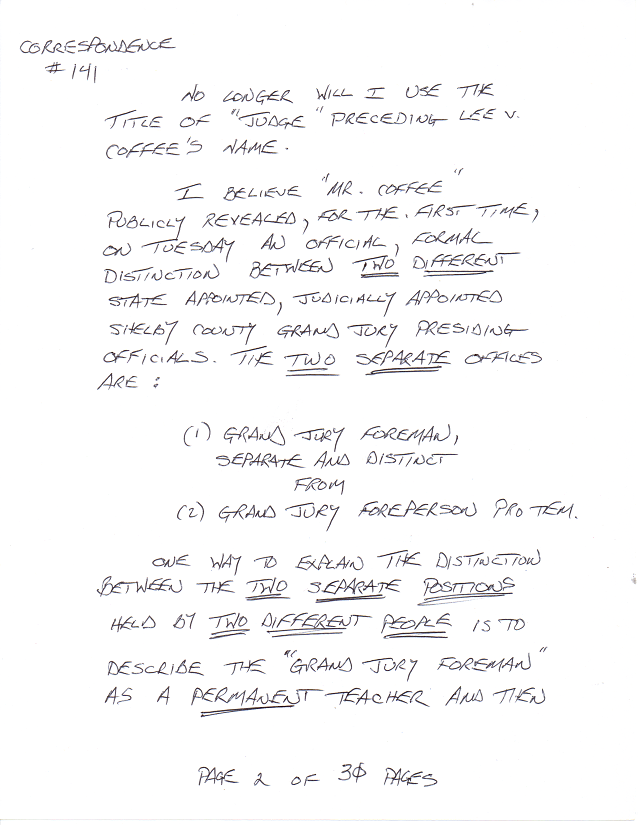 CORRESPONDENCE
# 141
NO LONGER WILL I USE THE
TITLE OF "JUDGE" PRECEDING LEE V.
COFFEE'S NAME.
I BELIEVE "MR. COFFEE"
PUBLICLY REVEALED, FOR THE. FIRST TIME,
ON TUESDAY AN OFFICIAL, FORMAL
DISTINCTION BETWEEN TWO DIFFERENT
STATE APPOINTED, JUDICIALLY APPOINTED
SHELBY COUNTY GRAND JURY PRESIDING
OFFICIALS. THE TWO SEPARATE OFFICES
ARE :
(1) GRAND JURY FOREMAN,
SEPARATE AND DISTINCT
FROM
(2) GRAND JURY FOREPERSON PRO TEM.
ONE WAY TO EXPLAIN THE DISTINCTION
BETWEEN THE TWO SEPARATE POSITIONS
HELD BY TWO DIFFERENT PEOPLE IS TO
DESCRIBE THE "GRAND JURY FOREMAN"
AS A PERMANENT TEACHER AND THEN
PAGE 2 OF 30 PAGES